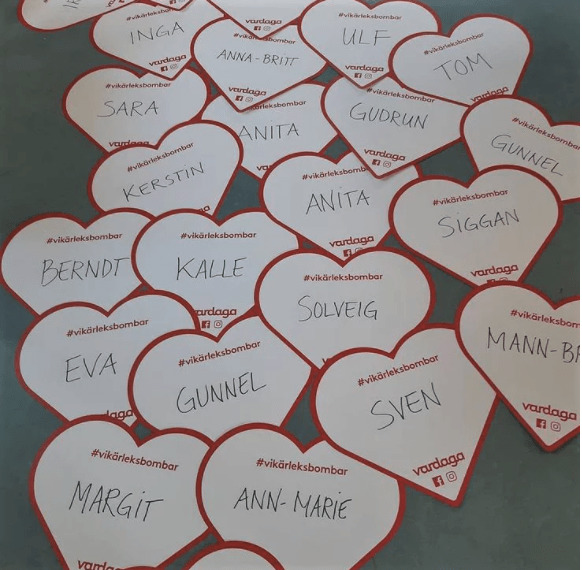 #vikärleksbombar
INGA
vardaga
#vikärleksbombar
ULF
vardaga
#vikärleksbombar
ANNA-BRITT
vardaga
#vikärleksbombar
TOM
vardaga
#vikärleksbombar
SARA
vardaga
ANITA
#vikärleksbombar
GUDRUN
vardaga
#vikärleksbombar
GUNNEL
#vikärleksbombar
KERSTIN
#vikärleksbombar
ANITA
vardaga
#vikärleksbombar
SIGGAN
vardaga
#vikärleksbombar
BERNDT
#vikärleksbombar
KALLE
vardaga
#vikärleksbombar
SOLVEIG
#vikärleksbombar
EVA
#vikärleksbombar
GUNNEL
#vikärleksbombar
SVEN
vardaga
#vikärleksbombar
MANN-BR
vardaga
#vikärleksbombar
MARGIT
vardaga
#vikärleksbombar
ANN-MARIE